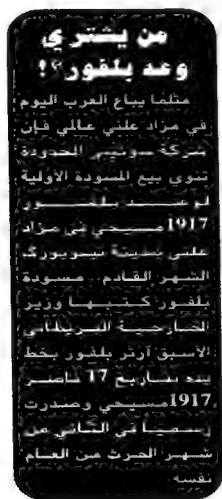 من يشتري
وعد بلفور؟!
مثلما يباع العرب اليوم
في مزاد علني عالمي فإن
شركة سوثبي المحدودة
تنوي بيع المسودة الأولية
لوعد بلفور
1917 مسيحي في مزاد
علني بمدينة نيويورك
الشهر القادم. مسودة
بلفور كتبها وزير
الخارجية البريطاني
الأسبق آرثر بلفور بخط
يده بتاريخ 17 ناصر
1917 مسيحي وصدرت
رسمياً في الثاني من
شهر الحرث من العام
نفسه